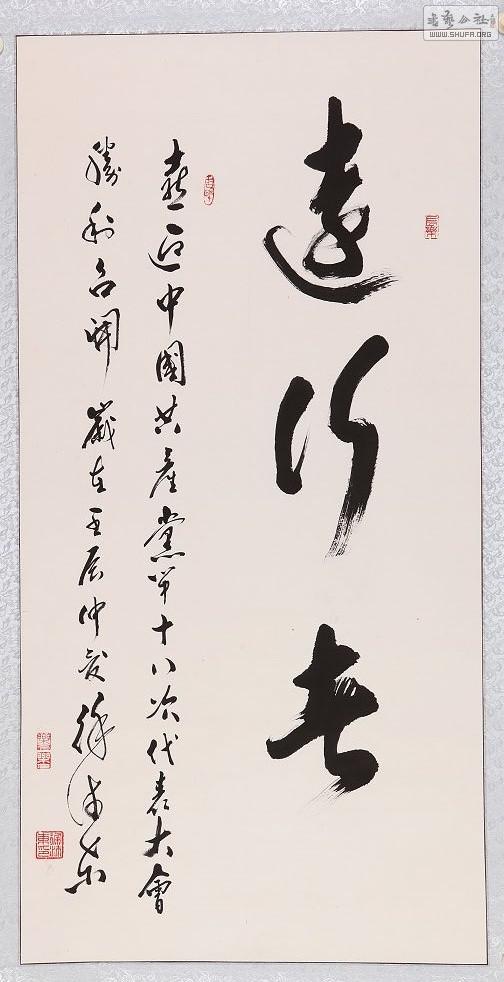 書藝公社
WWW.SHUFA.ORG
遠行者
喜迎中國共產黨第十八次代表大會
勝利召開 歲在壬辰仲夏 徐沛東